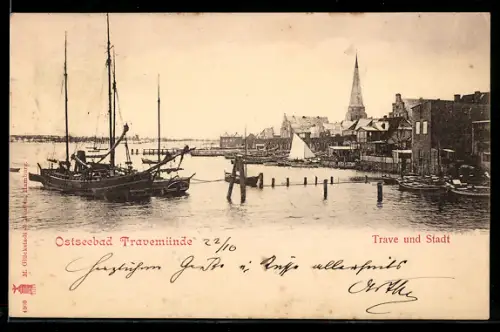 Ostseebad Travemünde 22/10
Trave und Stadt
Herzlichen Gruß u. Küsse allerseits
4908 M. Glückstadt & Münden, Hamburg